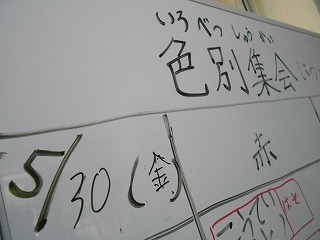 いろべつしゅうかい
色別集会
5/30(金)
赤